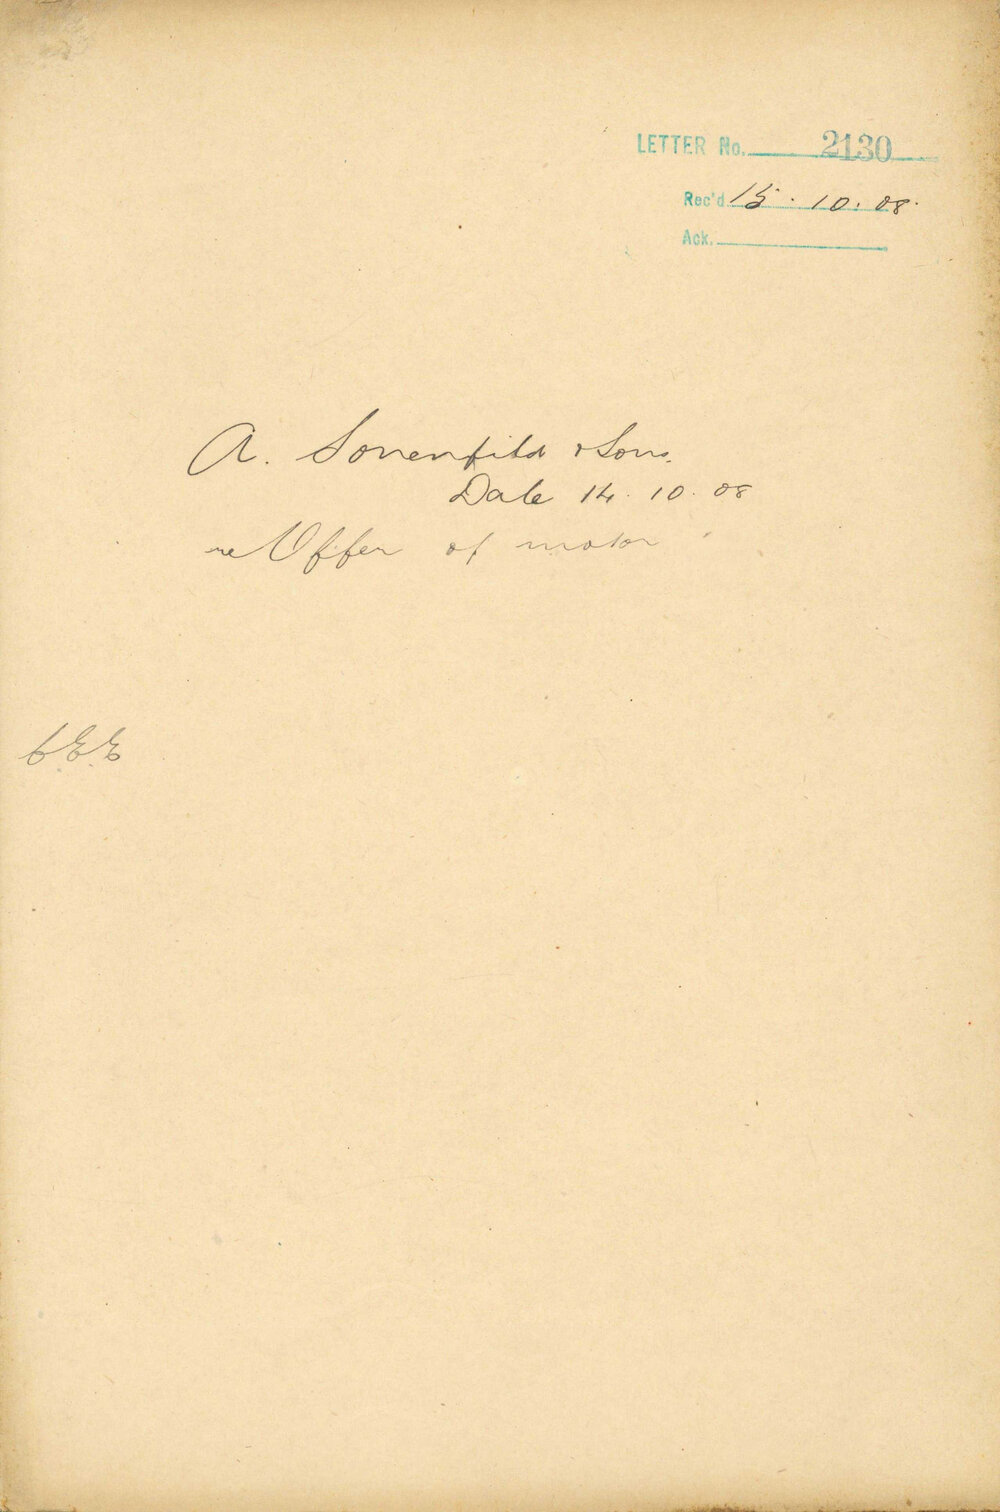 LETTER No. 2130
Rec'd 15. 10. 08.
Ack.
A. Sonenfild & Sons.
Date 14. 10. 08
re Offer of motor